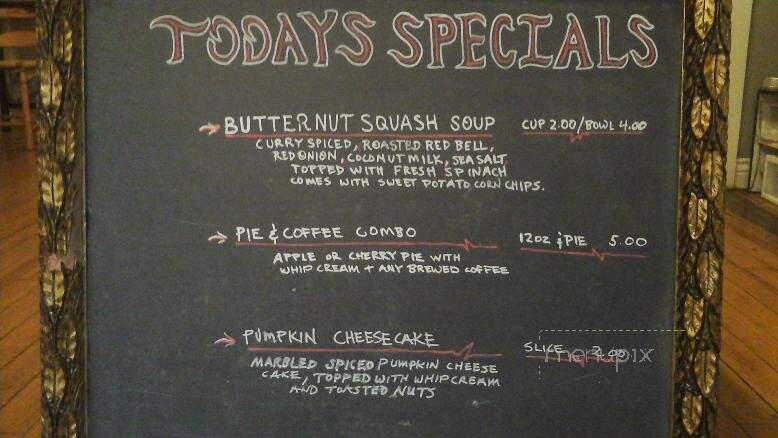 TODAYS SPECIALS
BUTTERNUT SQUASH SOUP CUP 2.00/BOWL 4.00
CURRY SPICED, ROASTED RED BELL,
RED ONION, COCONUT MILK, SEA SALT
TOPPED WITH FRESH SPINACH
COMES WITH SWEET POTATO CORN CHIPS.
PIE & COFFEE COMBO 12OZ & PIE 5.00
APPLE OR CHERRY PIE WITH
WHIP CREAM + ANY BREWED COFFEE
PUMPKIN CHEESECAKE SLICE
menupix
MARBLED SPICED PUMPKIN CHEESE
CAKE, TOPPED WITH WHIP CREAM
AND TOASTED NUTS